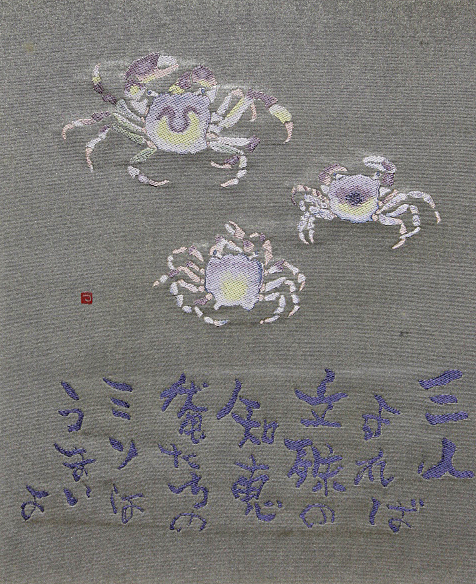 三人
寄れば
文殊の
知恵
僕たちの
ミソは
うまい
よ